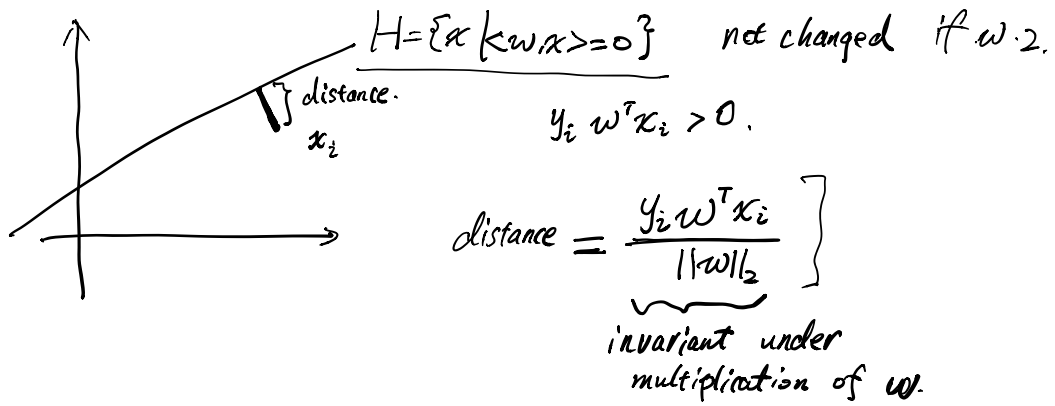 H={x|<w,x>=0} not changed if w·2.
distance.
x_i
y_i w^T x_i > 0.
distance = \frac{y_i w^T x_i}{||w||_2}
invariant under
multiplication of w.